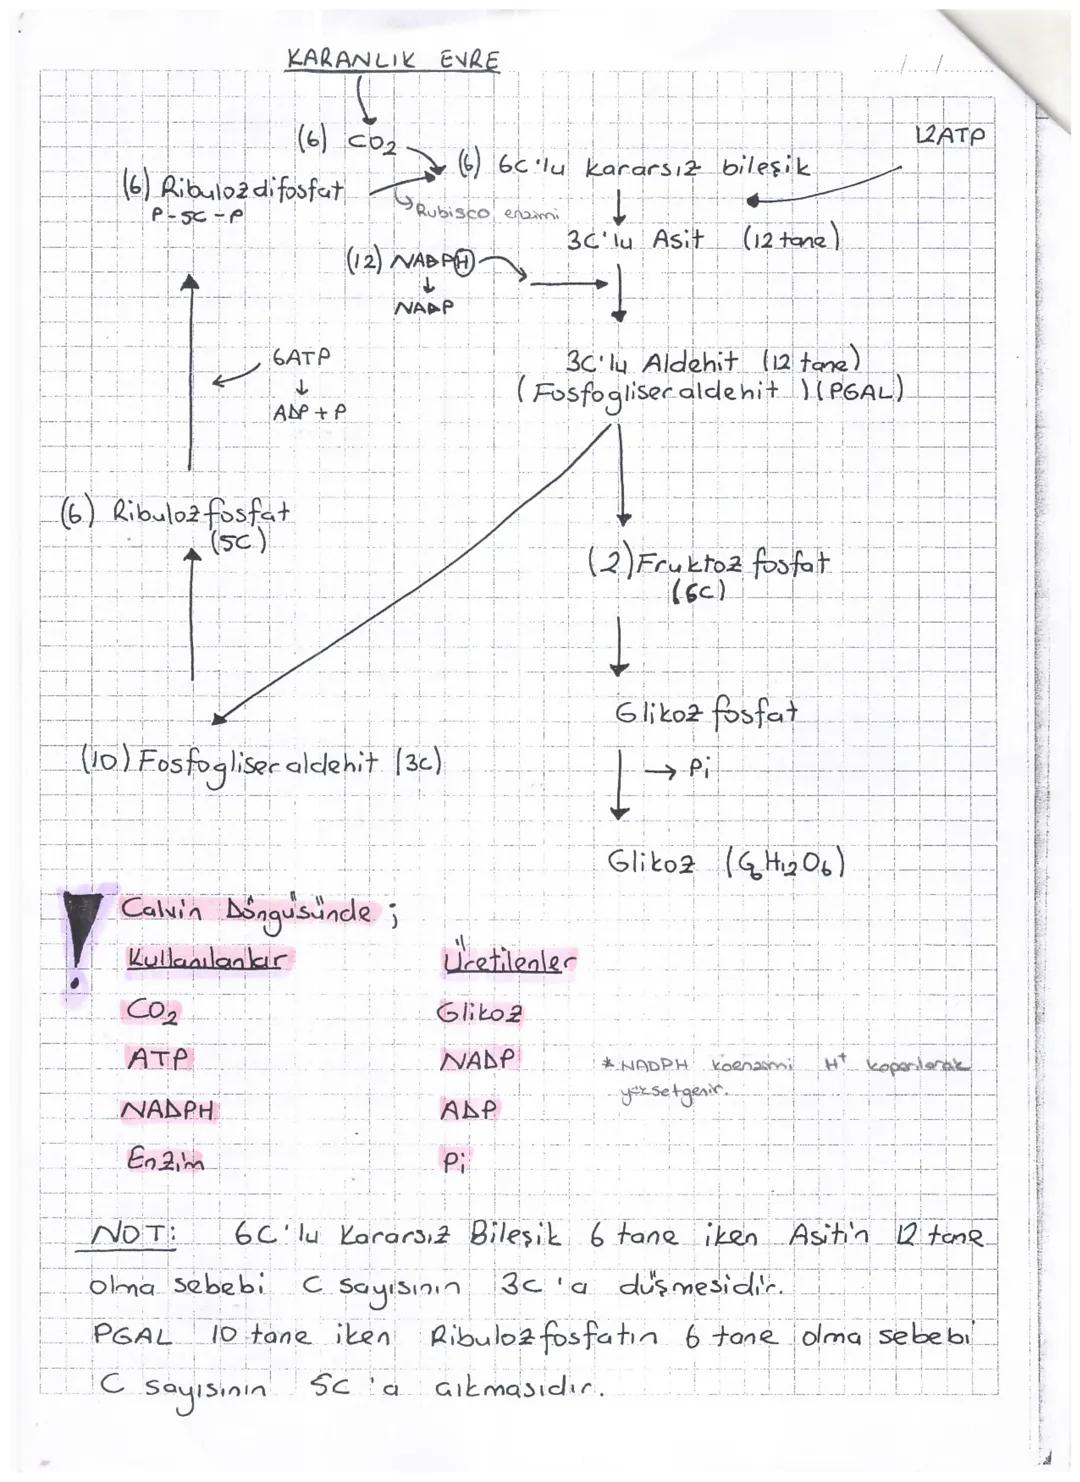 KARANLIK EVRE
..../..../........
12ATP
(6) CO₂
(6) 6C'lu kararsız bileşik
(6) Ribulozdifosfat
P-5C-P
Rubisco enzimi
3C'lu Asit (12 tane)
(12) NADPH
NADP
6ATP
ADP + P
3C'lu Aldehit (12 tane)
(Fosfogliseraldehit) (PGAL)
(6) Ribulozfosfat
(5C)
(2) Fruktoz fosfat
(6C)
Glikoz fosfat
(10) Fosfogliseraldehit (3C)
→ Pi
Glikoz (C₆H₁₂O₆)
! Calvin Döngüsünde ;
Kullanılanlar Üretilenler
CO₂ Glikoz
ATP NADP
* NADPH koenzimi H⁺ koparılarak
yükseltgenir.
NADPH ADP
Enzim Pi
NOT: 6C'lu Kararsız Bileşik 6 tane iken Asitin 12 tane
olma sebebi C sayısının 3C'a düşmesidir.
PGAL 10 tane iken Ribulozfosfatın 6 tane olma sebebi
C sayısının 5C'a çıkmasıdır.